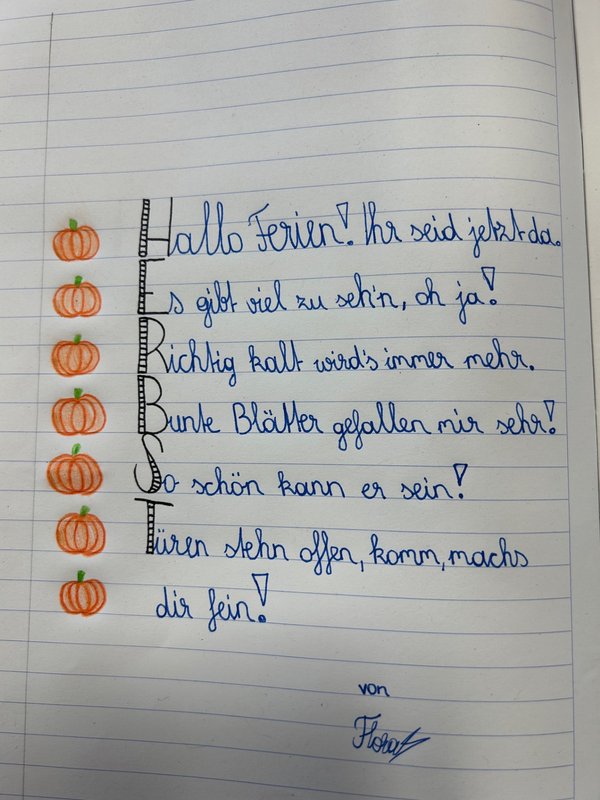 Hallo Ferien! Ihr seid jetzt da.
Es gibt viel zu seh'n, oh ja!
Richtig kalt wird's immer mehr.
Bunte Blätter gefallen mir sehr!
So schön kann er sein!
Türen stehn offen, komm, machs
dir fein!
von
Flora